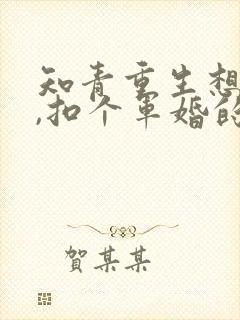 知青重生想
,扣个军婚的
賀某某